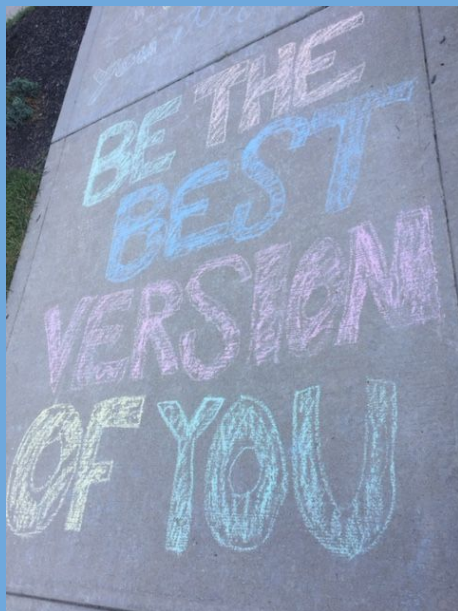 you
BE THE
BEST
VERSION
OF YOU